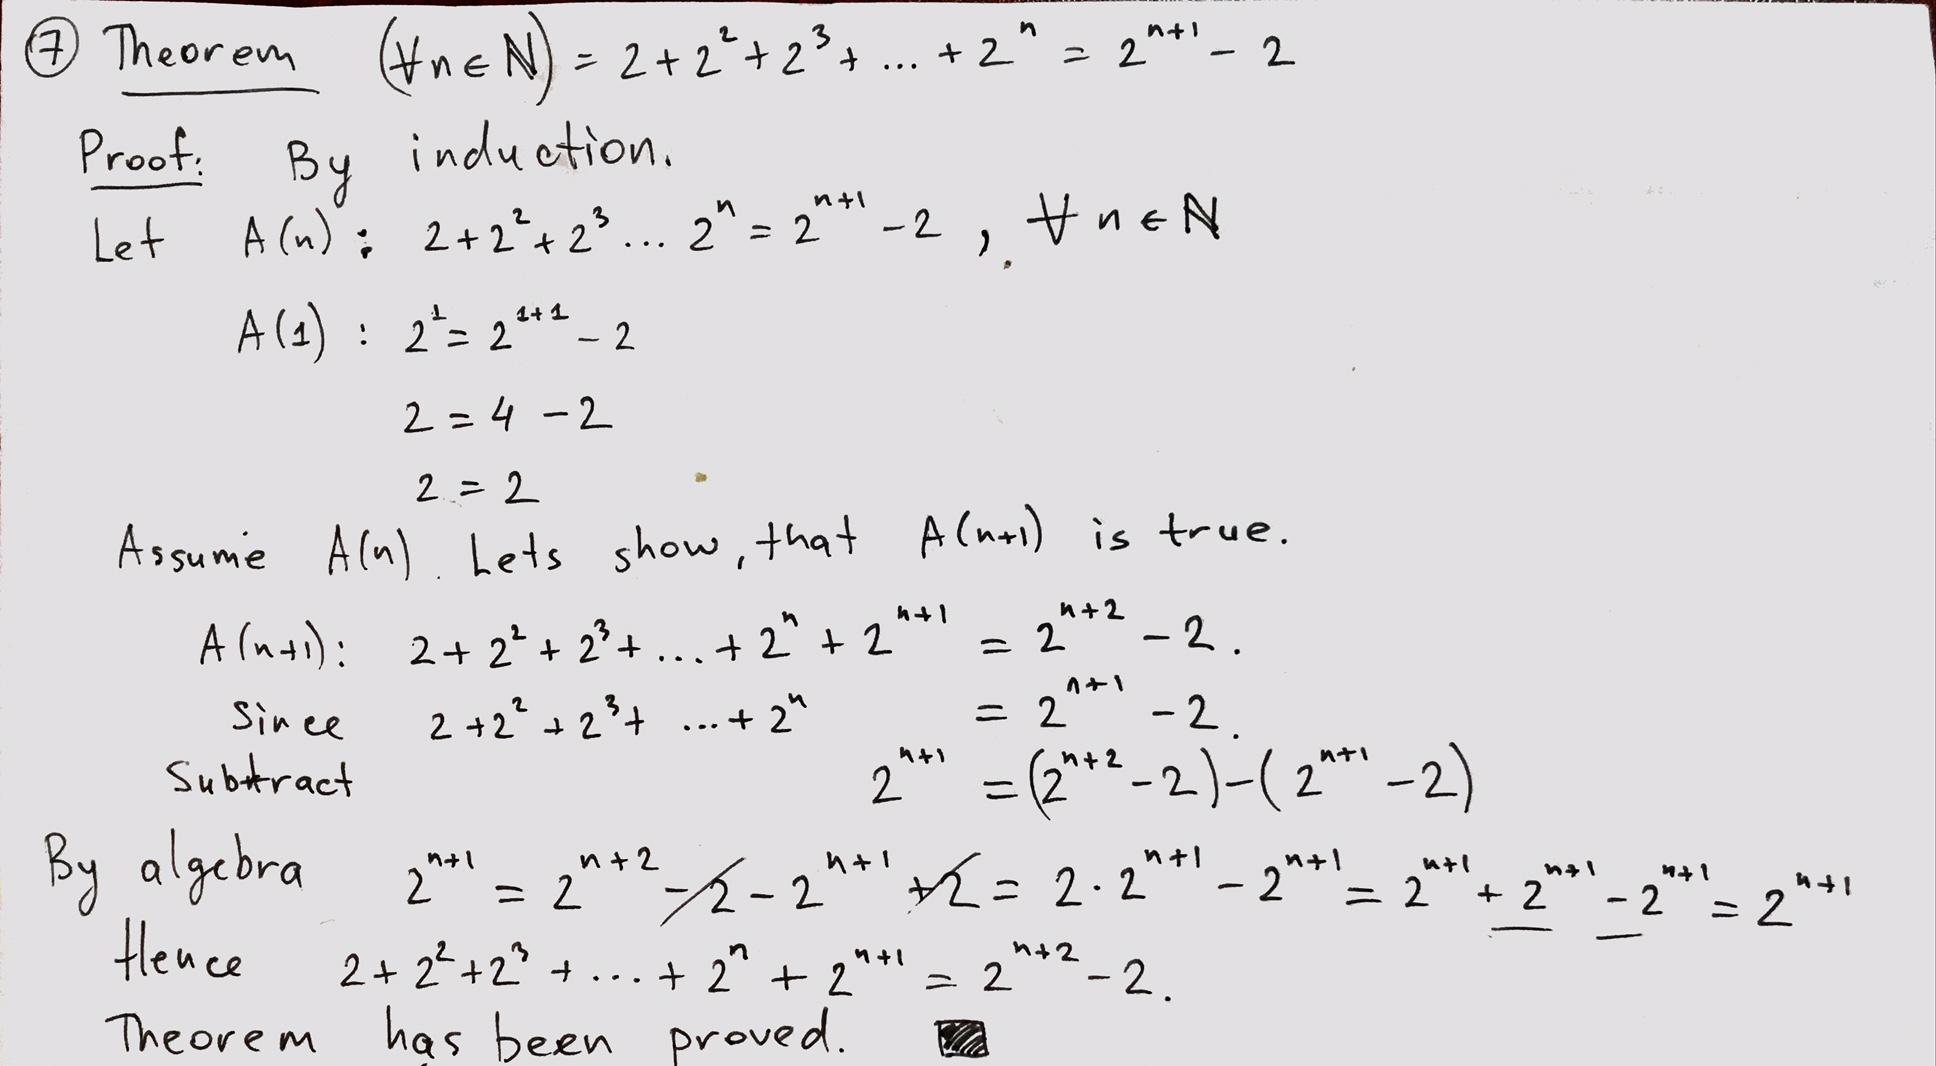 ⑦ Theorem (∀n∈ℕ) = 2+2²+2³+ ... +2ⁿ = 2ⁿ⁺¹ - 2
Proof: By induction.
Let A(n): 2+2²+2³... 2ⁿ = 2ⁿ⁺¹ - 2, ∀ n ∈ ℕ
A(1): 2¹ = 2¹⁺¹ - 2
2 = 4 - 2
2 = 2
Assume A(n). Lets show, that A(n+1) is true.
A(n+1): 2 + 2² + 2³ + ... + 2ⁿ + 2ⁿ⁺¹ = 2ⁿ⁺² - 2.
Since 2 + 2² + 2³ + ... + 2ⁿ = 2ⁿ⁺¹ - 2.
Subtract 2ⁿ⁺¹ = (2ⁿ⁺² - 2) - (2ⁿ⁺¹ - 2)
By algebra 2ⁿ⁺¹ = 2ⁿ⁺² - 2 - 2ⁿ⁺¹ + 2 = 2·2ⁿ⁺¹ - 2ⁿ⁺¹ = 2ⁿ⁺¹ + 2ⁿ⁺¹ - 2ⁿ⁺¹ = 2ⁿ⁺¹
Hence 2 + 2² + 2³ + ... + 2ⁿ + 2ⁿ⁺¹ = 2ⁿ⁺² - 2.
Theorem has been proved. ■